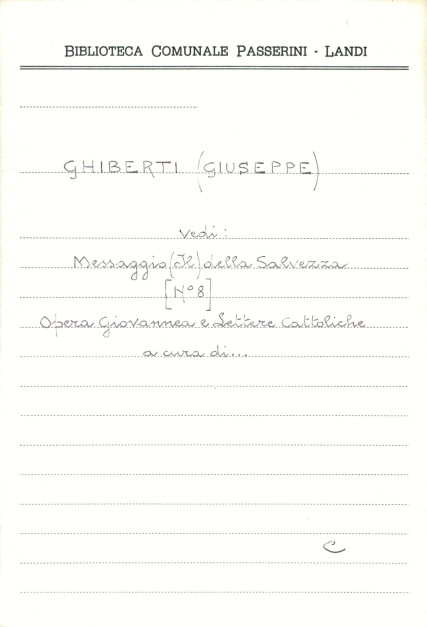 BIBLIOTECA COMUNALE PASSERINI - LANDI
GHIBERTI (GIUSEPPE)
Vedi:
Messaggio (Il) della Salvezza
[N° 8]
Opera Giovannea e Lettere Cattoliche
a cura di...
C